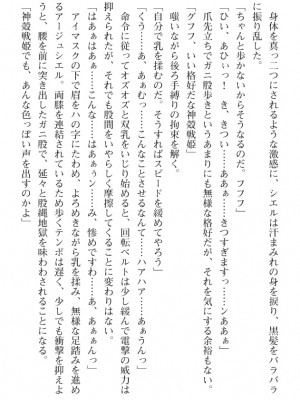 身体を真っ二つにされるような激感に、シエルは汗まみれの身を捩り、黒髪をバラバラ
に振り乱した。
「ちゃんと歩かないからそうなるのだ。フフフ」
「ひい、あひぃっ！　き、きつい……ああぁ……きつすぎますっ……ンあああぁ」
爪先立ちでガニ股歩きというあまりにも無様な格好だが、それを気にする余裕もない。
「グフフ、いい格好だな神殻戦姫」
嗤いながら後ろ手縛りの拘束を解く。
「自分で乳を揉むのだ。そうすればスピードを緩めてやろう」
「くう……あ、あぁむっ……こんなことさせるなんて……ハアハア……あぁうんっ」
命令に従ってオズオズと双乳をいじり始めると、回転ベルトは少し緩んで電撃の威力は
抑えられた。それでも股間をいやらしく摩擦してくることに変わりはない。
「はぁはぁ……こんな……はあぅン……み、惨めですわ……あ、あぁんっ」
アイマスクの下で眉をハの字にたわめ、よろめきながら乳を揉み、無様な足踏みを進め
るアージュシエル。両膝を連結されているため歩くテンポは遅く、少しでも衝撃を抑えよ
うと、腰を前に突き出したガニ股で、延々と股縄地獄を味わわされることになる。
「神殻戦姫でも、あんな色っぽい声を出すのかよ」